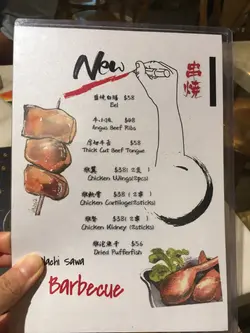 New
串燒
$58
Eel
$48
Angus Beef Ribs
厚切牛舌 $58
Thick Cut Beef Tongue
雞翼 $38(2隻)
Chicken Wings(2pcs)
雞軟骨 $38(2串)
Chicken Cartilage(2sticks)
雞腎 $38(2串)
Chicken Kidney (2sticks)
$56
Dried Pufferfish
achi Sawa
Barbecue